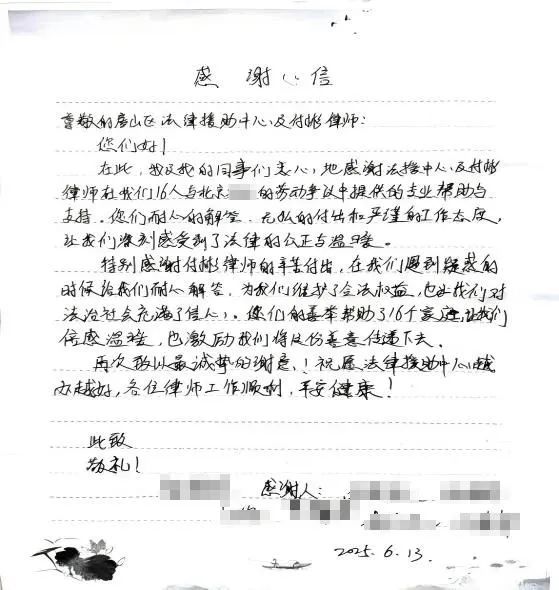 感谢心信
尊敬的房山区法律援助中心及付彬律师：
您们好！
在此，我及我的同事们衷心地感谢法援中心及付彬
律师在我们16人与北京 的劳动争议中提供的专业帮助与
支持。您们耐心的解答、无私的付出和严谨的工作态度，
让我们深刻感受到了法律的公正与温暖。
特别感谢付彬律师的辛苦付出，在我们遇到疑惑的
时候给我们耐心解答，为我们维护了合法权益，也让我们对
法治社会充满了信心。您们的善举帮助了16个家庭让我们
倍感温暖，也激励我们将这份善意传递下去。
再次致以最诚挚的谢意！祝愿法律援助中心越
办越好，各位律师工作顺利，平安健康！
此致
敬礼！
感谢人：
2025.6.13